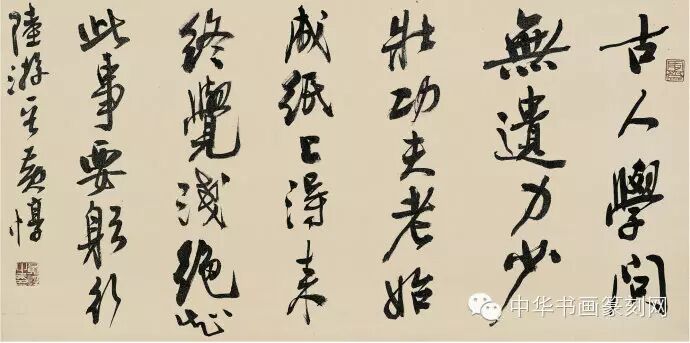 古人學問
無遺力少
壯功夫老始
成紙上得来
終覺淺絕知
此事要躬行
陸游 黄惇
中华书画篆刻网